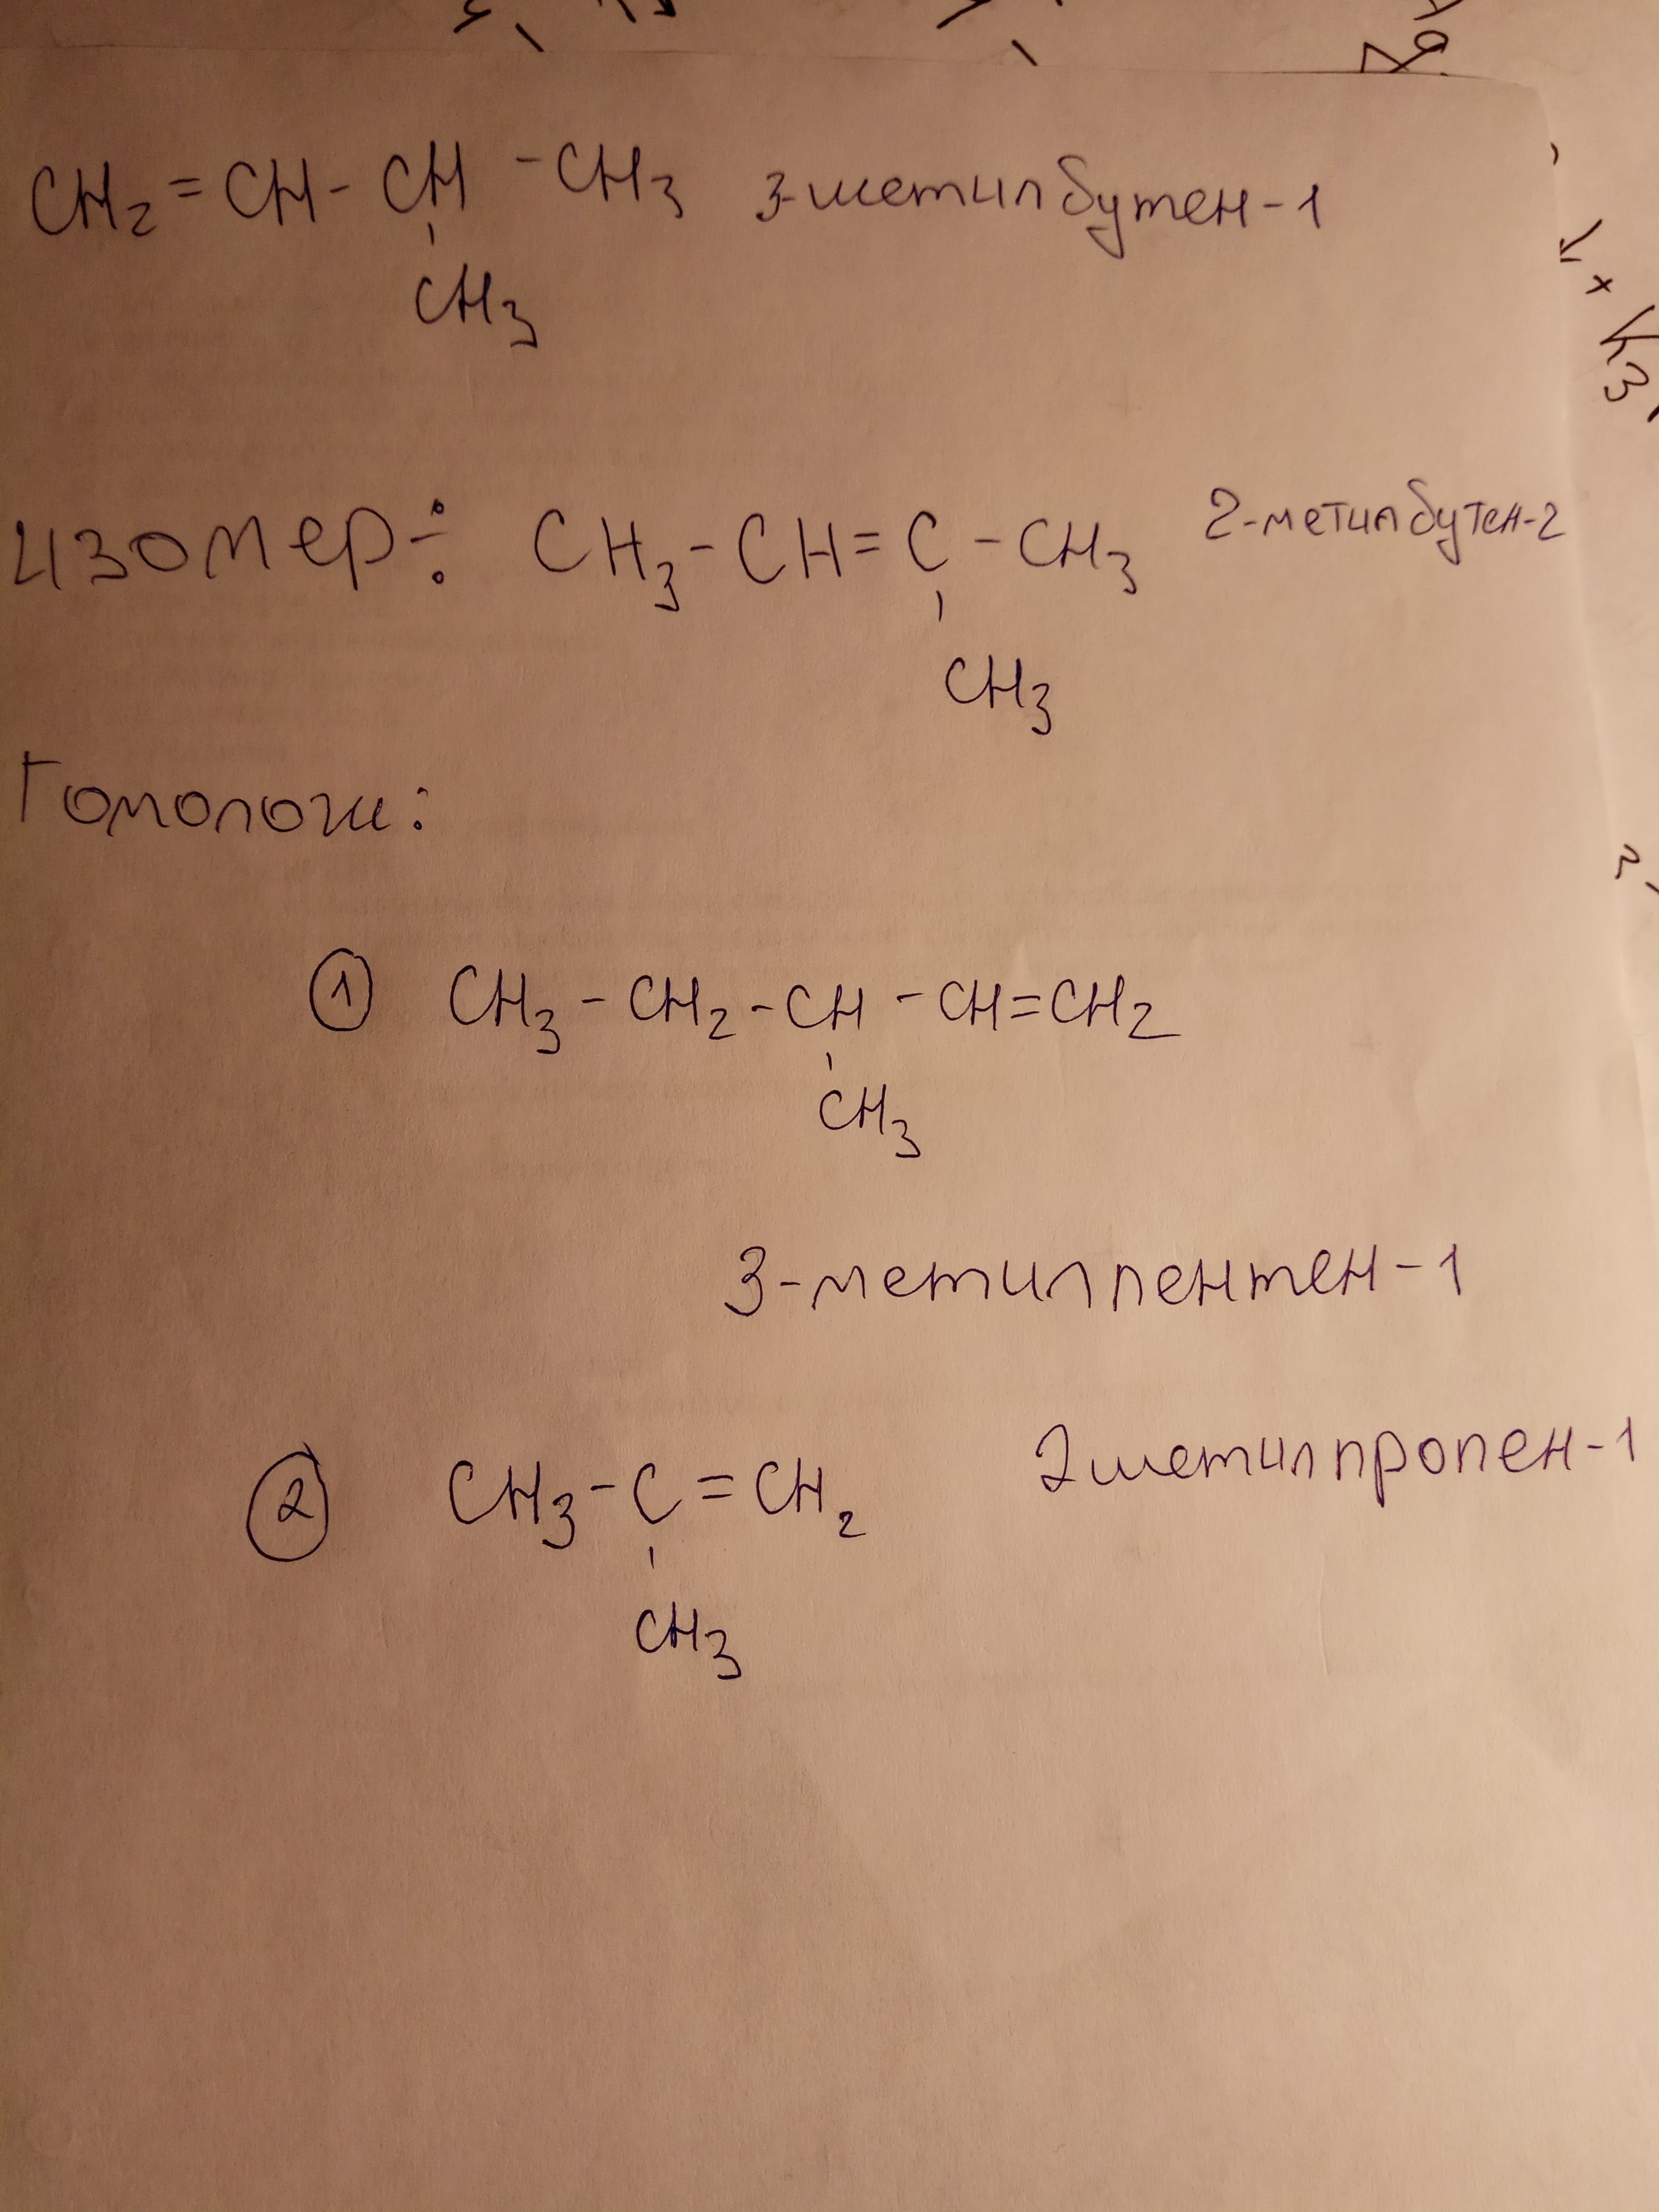 CH₂=CH-CH-CH₃ 3-метилбутен-1
CH₃
изомер÷ CH₃-CH=C-CH₃ 2-метилбутен-2
CH₃
Гомологи:
① CH₃-CH₂-CH-CH=CH₂
CH₃
3-метилпентен-1
② CH₃-C=CH₂ 2метилпропен-1
CH₃